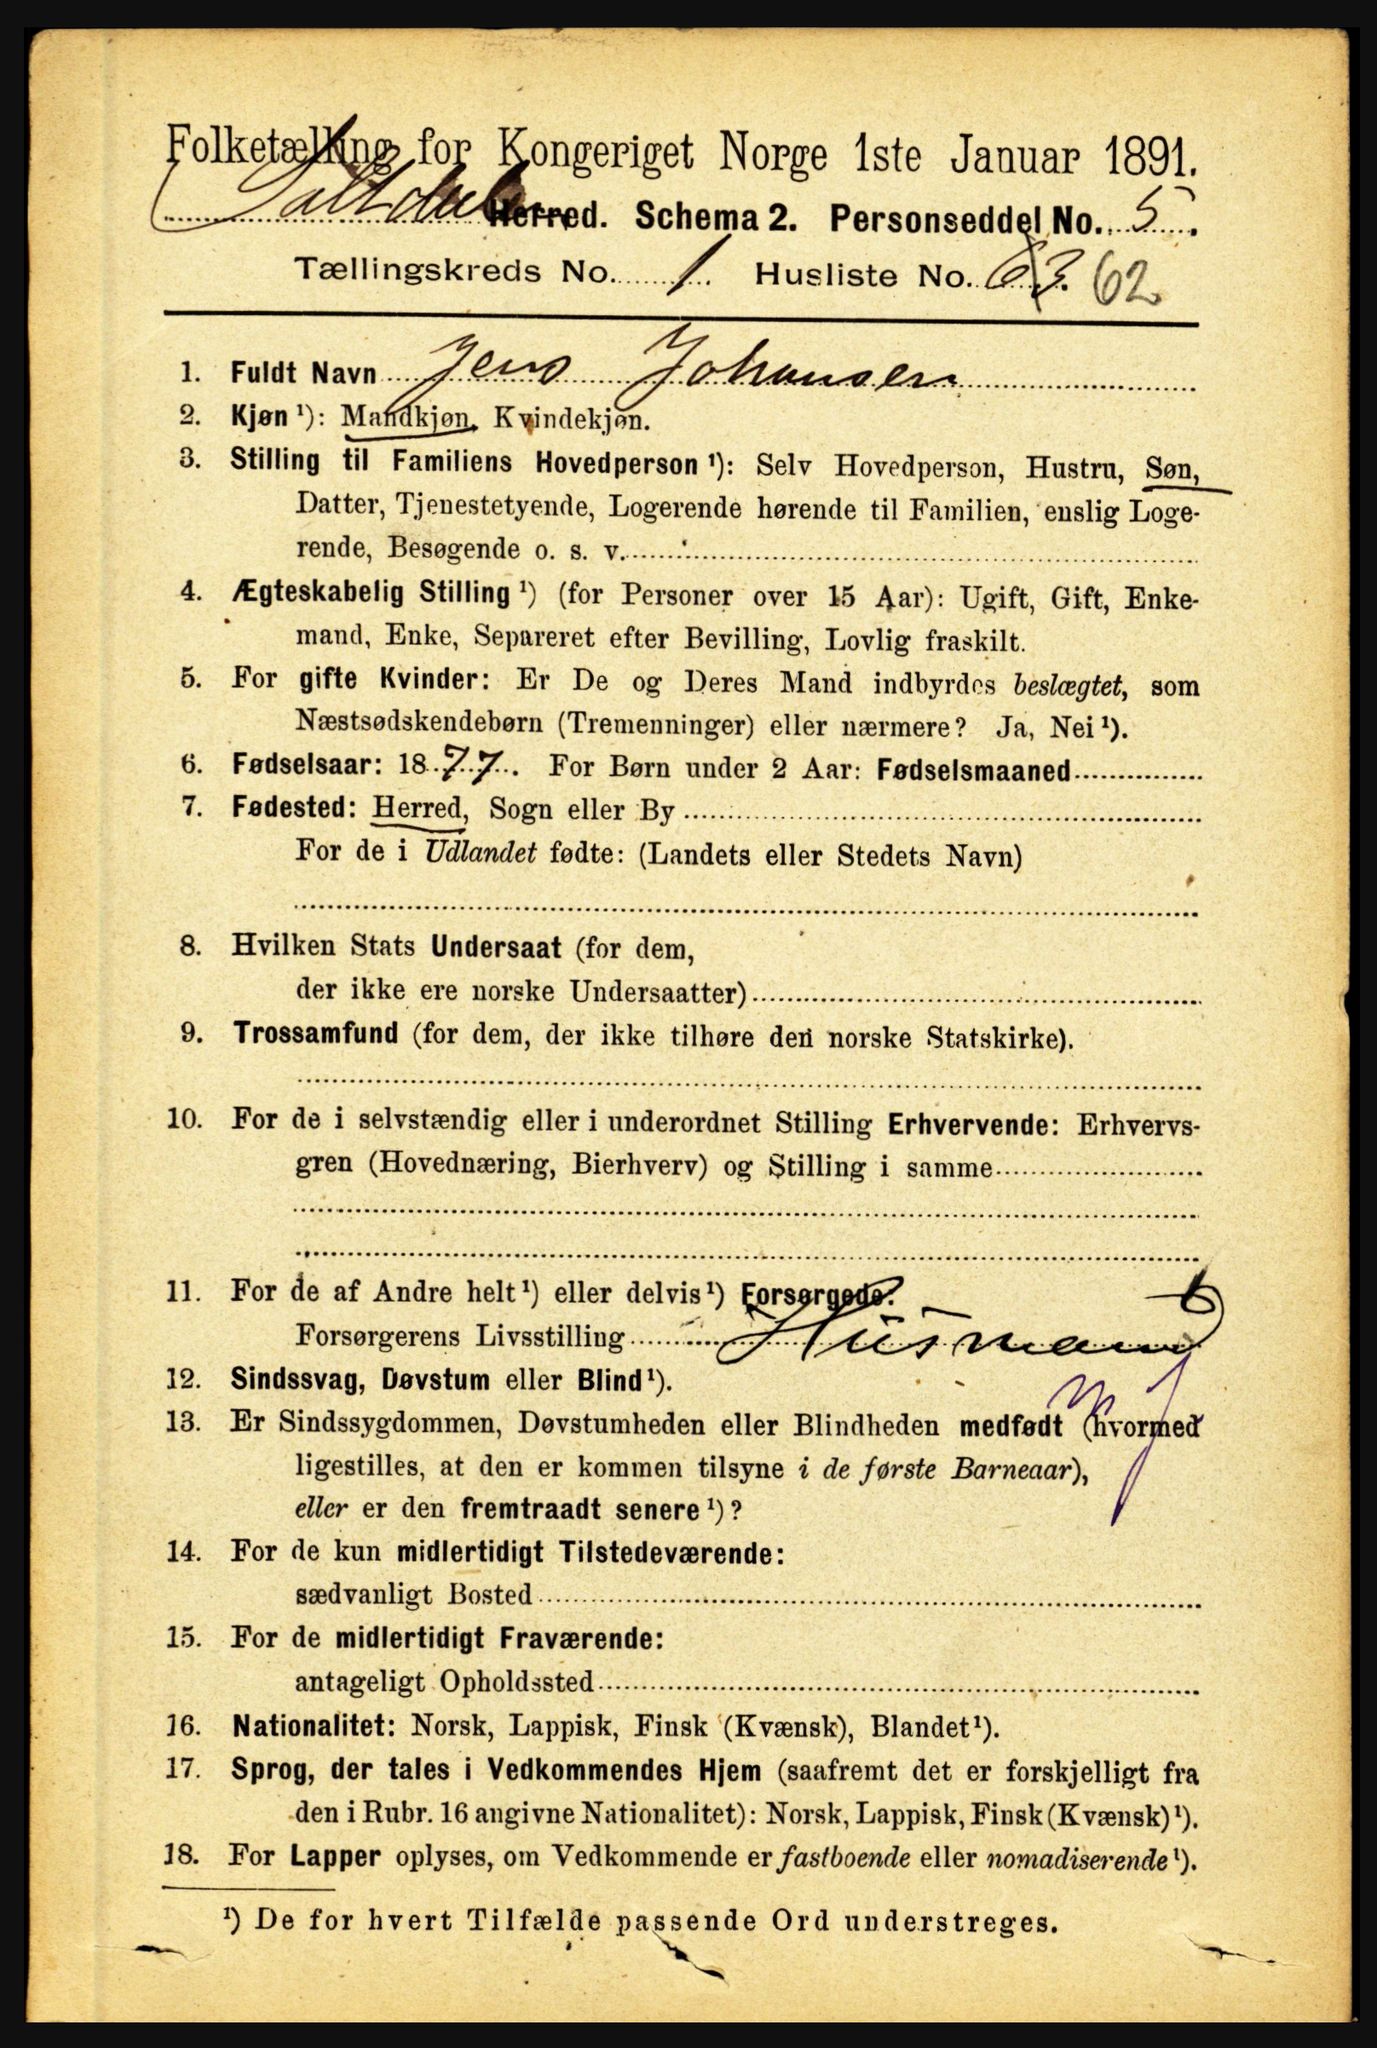 Folketælling for Kongeriget Norge 1ste Januar 1891.
Saltdalen Herred. Schema 2. Personseddel No. 5.
Tællingskreds No. 1. Husliste No. 63. 62
1. Fuldt Navn Jens Johansen
2. Kjøn ¹): Mandkjøn, Kvindekjøn.
3. Stilling til Familiens Hovedperson ¹): Selv Hovedperson, Hustru, Søn,
Datter, Tjenestetyende, Logerende hørende til Familien, enslig Loge-
rende, Besøgende o. s. v.
4. Ægteskabelig Stilling ¹) (for Personer over 15 Aar): Ugift, Gift, Enke-
mand, Enke, Separeret efter Bevilling, Lovlig fraskilt.
5. For gifte Kvinder: Er De og Deres Mand indbyrdes beslægtet, som
Næstsødskendebørn (Tremenninger) eller nærmere? Ja, Nei ¹).
6. Fødselsaar: 1877. For Børn under 2 Aar: Fødselsmaaned
7. Fødested: Herred, Sogn eller By
For de i Udlandet fødte: (Landets eller Stedets Navn)
8. Hvilken Stats Undersaat (for dem,
der ikke ere norske Undersaatter)
9. Trossamfund (for dem, der ikke tilhøre den norske Statskirke).
10. For de i selvstændig eller i underordnet Stilling Erhvervende: Erhvervs-
gren (Hovednæring, Bierhverv) og Stilling i samme
11. For de af Andre helt ¹) eller delvis ¹) Forsørgede.
Forsørgerens Livsstilling Husmand
12. Sindssvag, Døvstum eller Blind ¹).
13. Er Sindssygdommen, Døvstumheden eller Blindheden medfødt (hvormed
ligestilles, at den er kommen tilsyne i de første Barneaar),
eller er den fremtraadt senere ¹)?
14. For de kun midlertidigt Tilstedeværende:
sædvanligt Bosted
15. For de midlertidigt Fraværende:
antageligt Opholdssted
16. Nationalitet: Norsk, Lappisk, Finsk (Kvænsk), Blandet ¹).
17. Sprog, der tales i Vedkommendes Hjem (saafremt det er forskjelligt fra
den i Rubr. 16 angivne Nationalitet): Norsk, Lappisk, Finsk (Kvænsk) ¹).
18. For Lapper oplyses, om Vedkommende er fastboende eller nomadiserende ¹).
¹) De for hvert Tilfælde passende Ord understreges.